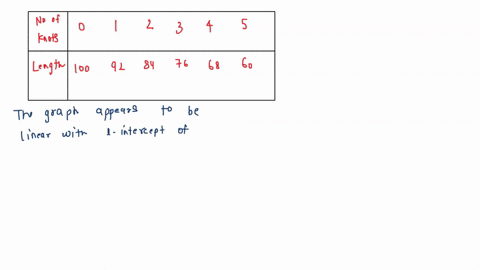 No of Knots 0 1 2 3 4 5
Length 100 92 84 76 68 60
The graph appears to be
linear with l-intercept of